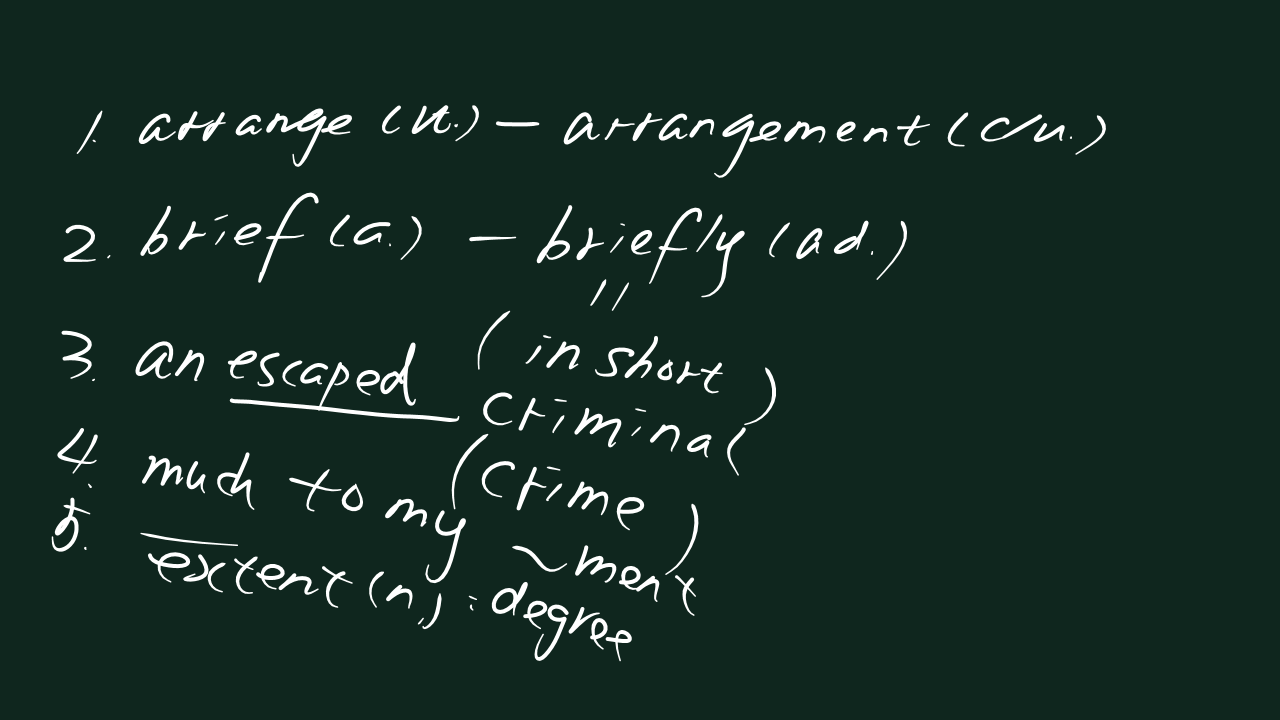 1. arrange (vt.) — arrangement (c/u.)
2. brief (a.) — briefly (ad.)
〃 (in short)
3. an escaped criminal
(crime)
4. much to my ~ment
5. extent (n.) : degree